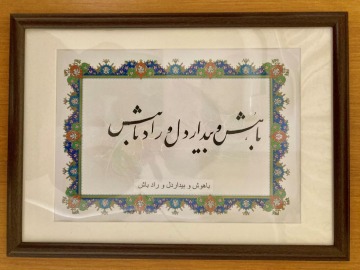 باهُش و بیداردل و راد باش
باهوش و بیداردل و راد باش